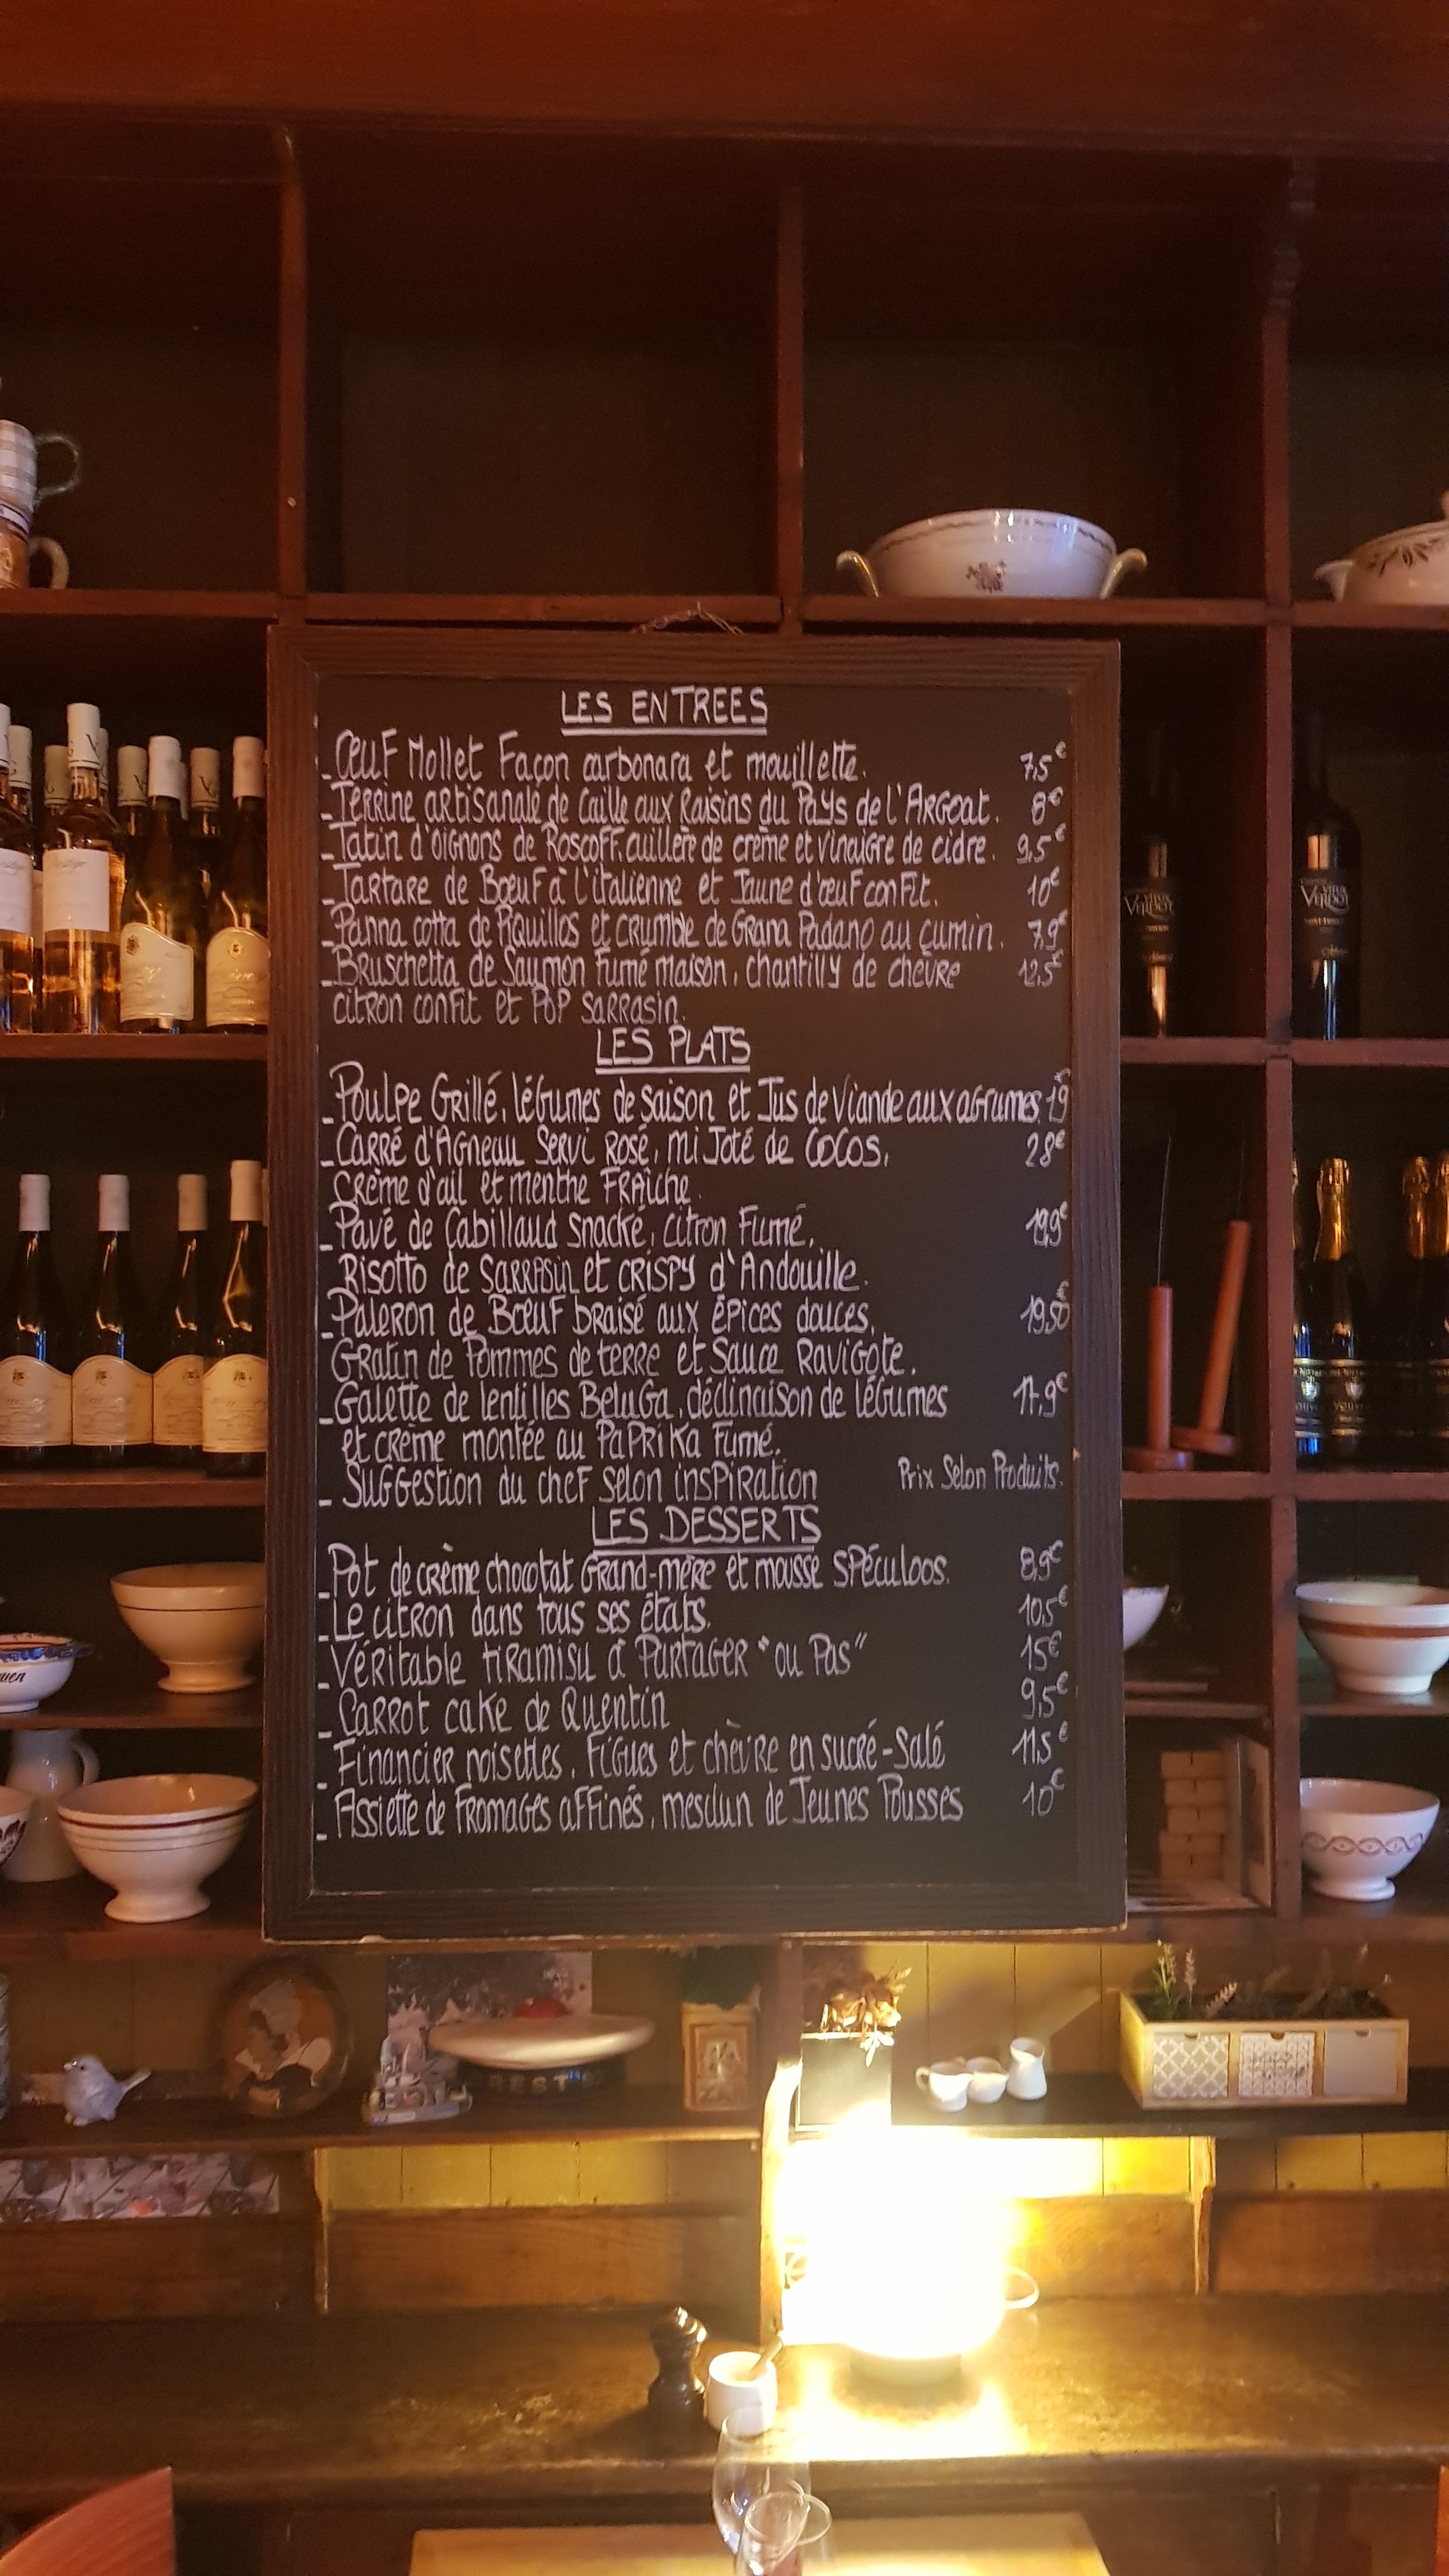 LES ENTREES
_ Œuf Mollet Façon carbonara et mouillette. 7,5€
_ Terrine artisanale de Caille aux Raisins du Pays de l'Argoat. 8€
_ Tatin d'oignons de Roscoff, cuillère de crème et vinaigre de cidre. 9,5€
_ Tartare de Bœuf à l'italienne et Jaune d'œuf confit. 10€
_ Panna cotta de Piquillos et crumble de Grana Padano au cumin. 7,9€
_ Bruschetta de Saumon Fumé maison, chantilly de chèvre 12,5€
citron confit et Pop Sarrasin.
LES PLATS
_ Poulpe Grillé, légumes de saison et Jus de Viande aux agrumes 19€
_ Carré d'Agneau Servi Rosé, mijoté de COCOS, 28€
crème d'ail et menthe Fraîche.
_ Pavé de Cabillaud Snacké, citron Fumé, 19,9€
Risotto de Sarrasin et crispy d'Andouille.
_ Paleron de Bœuf braisé aux épices douces, 19,50€
Gratin de Pommes de terre et Sauce Ravigote.
_ Galette de lentilles Beluga, déclinaison de légumes 17,9€
et crème montée au Paprika Fumé.
_ Suggestion du chef selon inspiration Prix Selon Produits.
LES DESSERTS
_ Pot de crème chocotat Grand-mère et mousse spéculoos. 8,9€
_ Le citron dans tous ses états. 10,5€
_ Véritable tiramisu à Partager "ou Pas" 15€
_ Carrot cake de Quentin 9,5€
_ Financier noisettes, Figues et chèvre en sucré-Salé 11,5€
_ Assiette de Fromages affinés, mesclun de Jeunes Pousses 10€
VIEUX
VERDOT
VIEUX
VERDOT
BREST